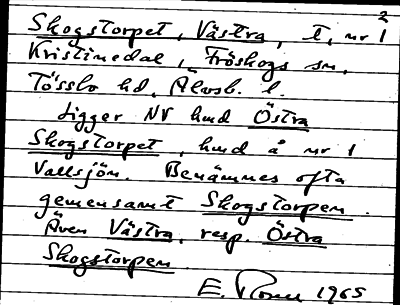 Skogstorpet, Västra, t, nr 1²
Kristinedal, Fröskogs sn,
Tössbo hd, Älvsb. l.
Ligger NV hmd Östra
Skogstorpet, hmd å nr 1
Vallsjön. Benämnes ofta
gemensamt Skogstorpen.
Även Västra, resp. Östra
Skogstorpen.
E. 1965